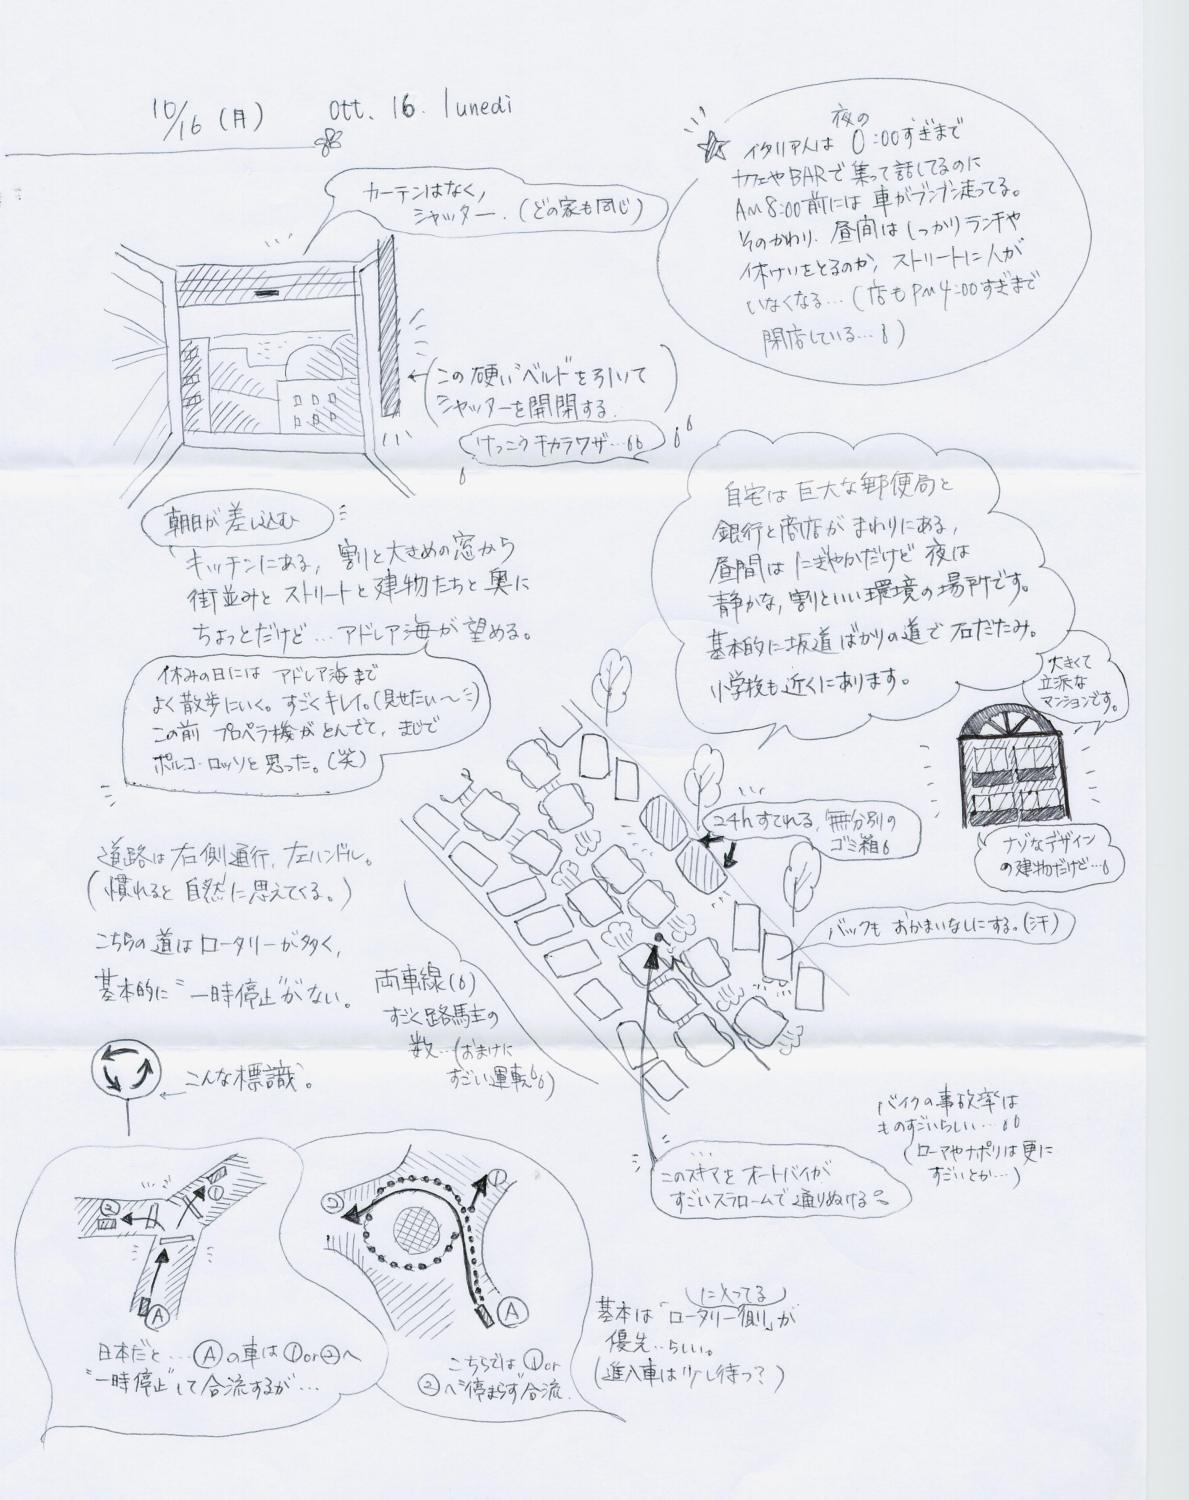 10/16 (月)
Ott. 16. lunedì
夜の
イタリア人は 0:00すぎまで
カフェやBARで集って話してるのに
AM8:00前には車がブンブン走ってる。
そのかわり、昼間はしっかりランチや
休けいをとるのか、ストリートに人が
いなくなる…(店もPM4:00すぎまで
閉店している…)
カーテンはなく、
シャッター。(どの家も同じ)
この硬いベルトを引いて
シャッターを開閉する。
けっこうチカラワザ…
朝日が差し込む
キッチンにある、割と大きめの窓から
街並みとストリートと建物たちと奥に
ちょっとだけど…アドレア海が望める。
休みの日にはアドレア海まで
よく散歩にいく。すごくキレイ。(見せたい〜)
この前 プロペラ機がとんでて、まじで
ポルコ・ロッソと思った。(笑)
自宅は巨大な郵便局と
銀行と商店がまわりにある、
昼間はにぎやかだけど夜は
静かな、割といい環境の場所です。
基本的に坂道ばかりの道で石だたみ。
小学校も近くにあります。
大きくて
立派な
マンションです。
ナゾなデザイン
の建物だけど…
24hすてれる、無分別の
ゴミ箱
バックもおかまいなしにする。(汗)
道路は右側通行、左ハンドル。
(慣れると自然に思えてくる。)
こちらの道はロータリーが多く、
基本的に"一時停止"がない。
両車線
すごく路駐の
数…(おまけに
すごい運転)
こんな標識。
バイクの事故率は
ものすごいらしい…
(ローマやナポリは更に
すごいとか…)
このスキマをオートバイが
すごいスラロームで通りぬける
② ①
A
日本だと…Ⓐの車は①or②へ
"一時停止"して合流するが…
② ①
A
こちらでは、①or
②へ停まらず合流。
にとってる
基本は「ロータリー側」が
優先…らしい。
(進入車は少し待つ?)